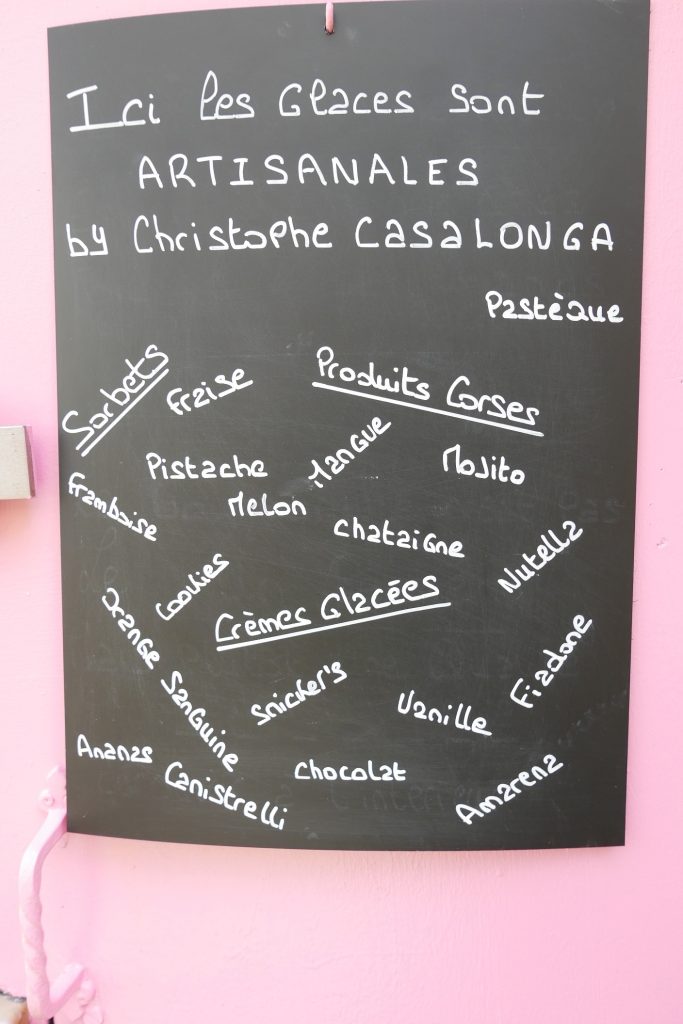 Ici les Glaces sont
ARTISANALES
by Christophe CASALONGA
Pastèque
Sorbets
Fraise
Produits Corses
Pistache
Mangue
Mojito
Framboise
Melon
Chataigne
Nutella
Cookies
Crèmes Glacées
Orange Sanguine
Snicker's
Vanille
Fiadone
Ananas
Canistrelli
Chocolat
Amarena